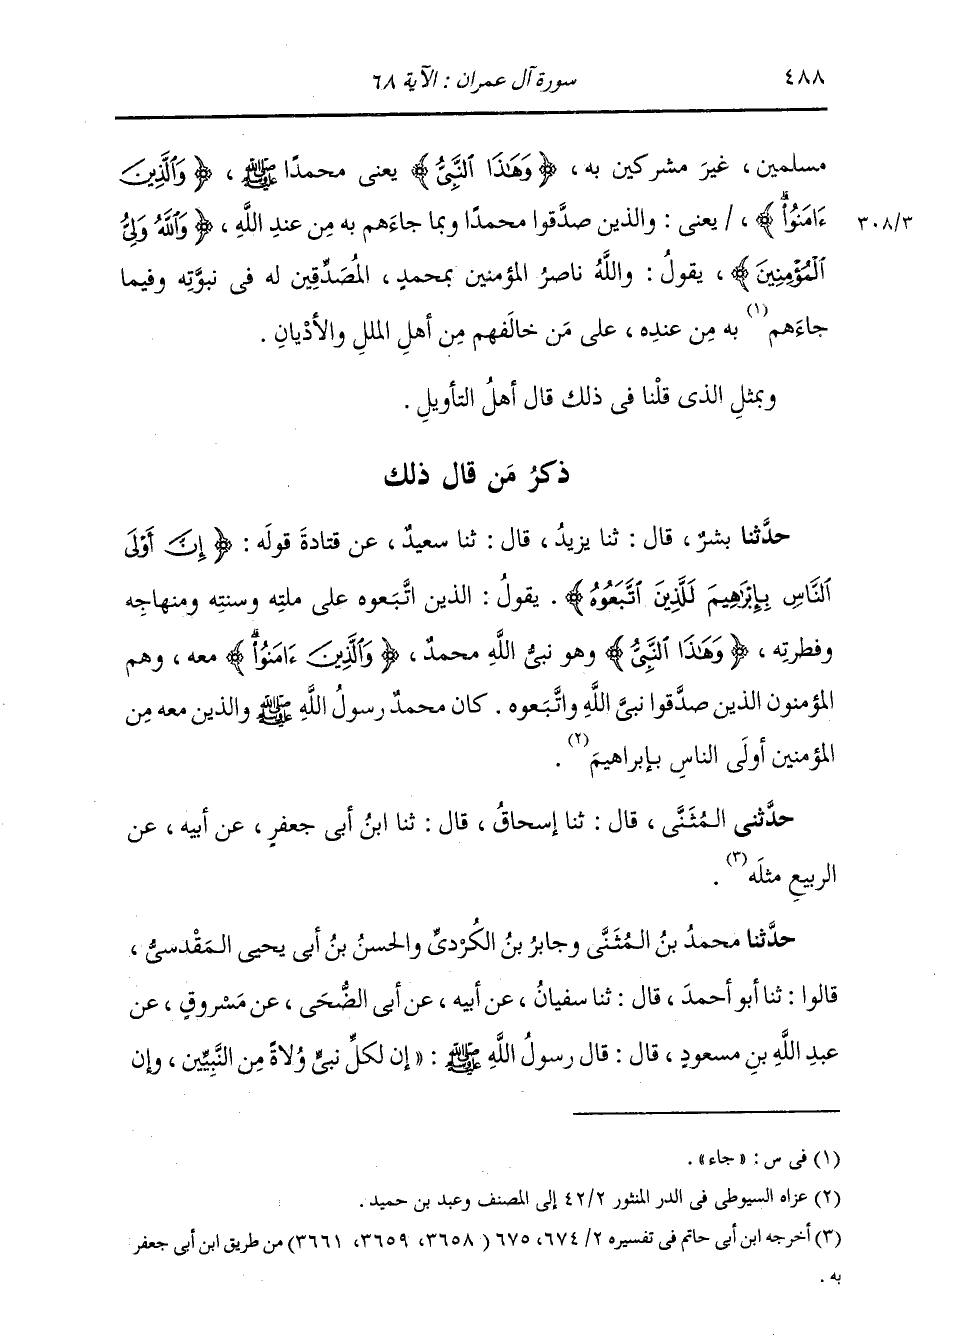 ٤٨٨ سورة آل عمران : الآية ٦٨
مسلمين ، غيرَ مشركين به ، ﴿ وَهَٰذَا ٱلنَّبِيُّ ﴾ يعنى محمدًا ﷺ ، ﴿ وَٱلَّذِينَ
ءَامَنُواْۗ ﴾ ، / يعنى : والذين صدَّقوا محمدًا وبما جاءَهم به مِن عندِ اللَّهِ ، ﴿ وَٱللَّهُ وَلِىُّ ٣٠٨/٣
ٱلْمُؤْمِنِينَ ﴾ ، يقولُ : واللَّهُ ناصرُ المؤمنين بمحمدٍ ، المُصَدِّقِين له فى نبوَّتِه وفيما
جاءَهم (١) به مِن عندِه ، على مَن خالَفهم مِن أهلِ المللِ والأدْيانِ .
وبمثلِ الذى قلْنا فى ذلك قال أهلُ التأويلِ .
ذكرُ مَن قال ذلك
حدَّثنا بشرٌ ، قال : ثنا يزيدُ ، قال : ثنا سعيدٌ ، عن قتادةَ قولَه : ﴿ إِنَّ أَوْلَى
ٱلنَّاسِ بِإِبْرَٰهِيمَ لَلَّذِينَ ٱتَّبَعُوهُ ﴾ . يقولُ : الذين اتَّبَعوه على ملتِه وسنتِه ومنهاجِه
وفطرتِه ، ﴿ وَهَٰذَا ٱلنَّبِيُّ ﴾ وهو نبىُّ اللَّهِ محمدٌ ، ﴿ وَٱلَّذِينَ ءَامَنُواْۗ ﴾ معه ، وهم
المؤمنون الذين صدَّقوا نبىَّ اللَّهِ واتَّبَعوه . كان محمدٌ رسولُ اللَّهِ ﷺ والذين معه مِن
المؤمنين أولَى الناسِ بإبراهيمَ (٢) .
حدَّثنى المُثَنَّى ، قال : ثنا إسحاقُ ، قال : ثنا ابنُ أبى جعفرٍ ، عن أبيه ، عن
الربيعِ مثلَه (٣) .
حدَّثنا محمدُ بنُ المُثَنَّى وجابرُ بنُ الكُرْدىِّ والحسنُ بنُ أبى يحيى المَقْدسىُّ ،
قالوا : ثنا أبو أحمدَ ، قال : ثنا سفيانُ ، عن أبيه ، عن أبى الضُّحَى ، عن مَسْروقٍ ، عن
عبدِ اللَّهِ بنِ مسعودٍ ، قال : قال رسولُ اللَّهِ ﷺ : « إن لكلِّ نبىٍّ وُلاةً مِن النَّبِيِّين ، وإن
(١) فى س : « جاء » .
(٢) عزاه السيوطى فى الدر المنثور ٤٢/٢ إلى المصنف وعبد بن حميد .
(٣) أخرجه ابن أبى حاتم فى تفسيره ٢/ ٦٧٤، ٦٧٥ ( ٣٦٥٨، ٣٦٥٩، ٣٦٦١) من طريق ابن أبى جعفر
به .